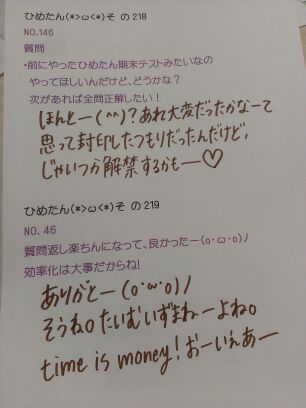 ひめたん(*>ω<*)そ の218
NO.146
質問
・前にやったひめたん期末テストみたいなの
やってほしいんだけど、どうかな？
次があれば全問正解したい！
ほんとー(^^)？あれ大変だったかなーて
思って封印したつもりだったんだけど、
じゃいつか解禁するかも―♡
ひめたん(*>ω<*)そ の219
NO. 46
質問返し楽ちんになって、良かったー(o・ω・o)ノ
効率化は大事だからね！
ありがとー(o・ω・o)ノ
そうね。たいむいずまねーよね。
time is money！おーいぇあー